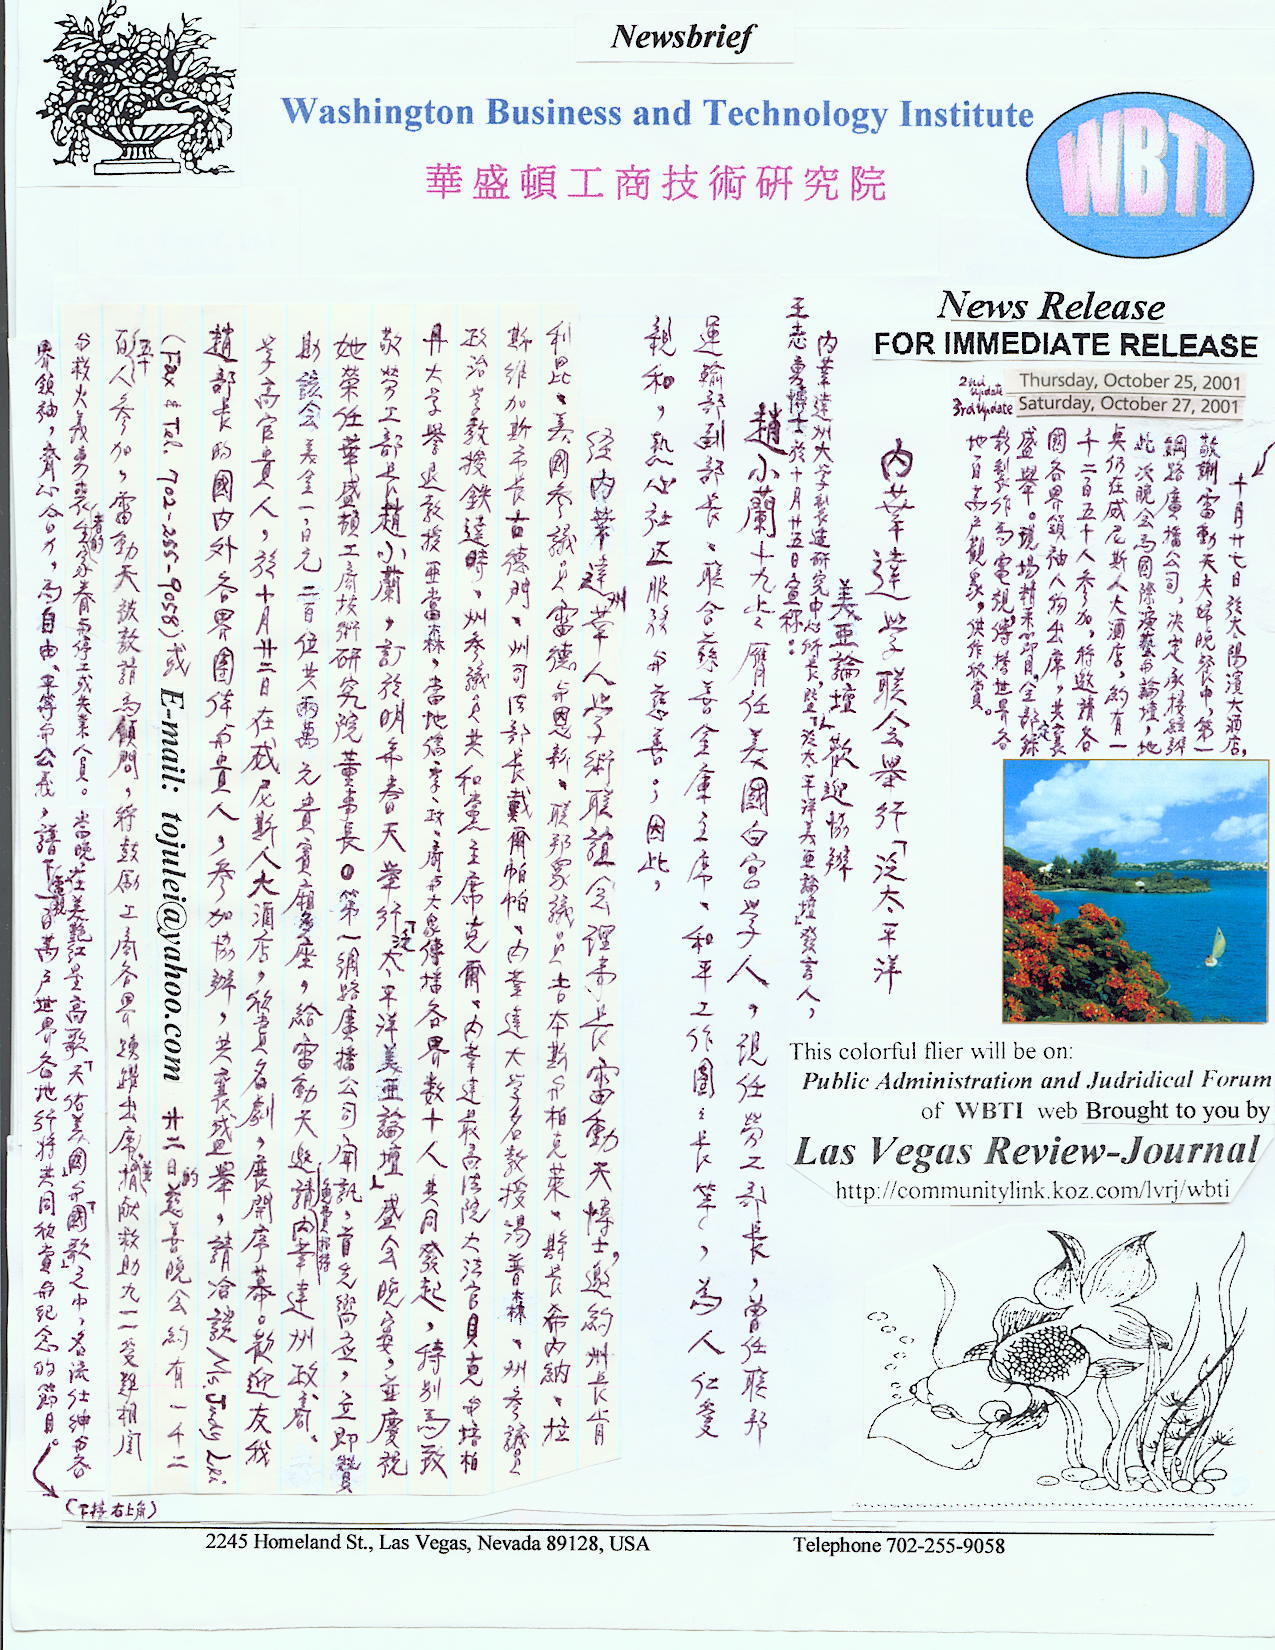 Newsbrief
Washington Business and Technology Institute
華盛頓工商技術研究院
WBTI
News Release
FOR IMMEDIATE RELEASE
2nd update Thursday, October 25, 2001
3rd update Saturday, October 27, 2001
內華達學聯會舉行「泛太平洋
美亞論壇」歡迎協辦
內華達州大學製造研究中心所長,暨「泛太平洋美亞論壇」發言人,
王志勇博士於十月廿五日宣稱:
趙小蘭十九上膺任美國白宮學人,現任勞工部長,曾任聯邦
運輸部副部長、聯合慈善金庫主席、和平工作團團長等,為人仁愛
親和,熱心社區服務與慈善;因此,
經內華達州華人學術聯誼會理事長雷動天博士,邀約州長肯
利昆、美國參議員雷德與恩新、聯邦眾議員吉本斯與柏克萊、縣長希內納、拉
斯維加斯市長古德門、州司法部長戴爾帕帕、內華達大學名教授湯普森、州參議員
政治學教授鐵達時、州參議員共和黨主席克爾、內華達最高法院大法官貝克與培柏
丹大學譽退教授亞當森,當地僑、學、政、商與大眾傳播各界數十人共同發起,特別為致
敬勞工部長趙小蘭,訂於明年春天舉行「泛太平洋美亞論壇」盛會晚宴,並慶祝
她榮任華盛頓工商技術研究院董事長。第一網路廣播公司聞訊,首先響應,立即贊
助該會美金一百元二百位共兩萬元貴賓廂座,給雷動天邀請內華達州政、商、
學高官貴人,於十月廿二日在威尼斯人大酒店,欣賞名劇,展開序幕。歡迎友我
趙部長的國內外各界團体與貴人,參加協辦,共襄盛舉,請洽談 Ms. Judy Lei
(Fax & Tel. 702-255-9058)或 E-mail: tojulei@yahoo.com 廿二日的慈善晚會約有一千二
百五十人參加,雷動天被敦請為顧問,將鼓勵工商各界踴躍出席,捐獻救助九一一受難相關
與救火義勇喪生者的家眷與停工或失業人員。當晚在美艷紅星高歌「天佑美國」與「國歌」之中,名流仕紳與各
界領袖,齊心合力,為自由、平等與公義,譜下電視百萬戶世界各地行將共同欣賞與紀念的節目。
(下接右上角)
十月廿七日於太陽濱大酒店,
敬謝雷動天夫婦晚餐中,第一
網路廣播公司,決定承接經辦
此次晚會為國際演藝與論壇,地
點仍在威尼斯人大酒店,約有一
千二百五十人參加,將邀請各
國各界領袖人物出席,共襄
盛舉。現場精采節目全部錄
影製作為電視,傳播世界各
地百萬戶觀眾,供作欣賞。
This colorful flier will be on:
Public Administration and Judridical Forum
of WBTI web Brought to you by
Las Vegas Review-Journal
http://communitylink.koz.com/lvrj/wbti
2245 Homeland St., Las Vegas, Nevada 89128, USA
Telephone 702-255-9058